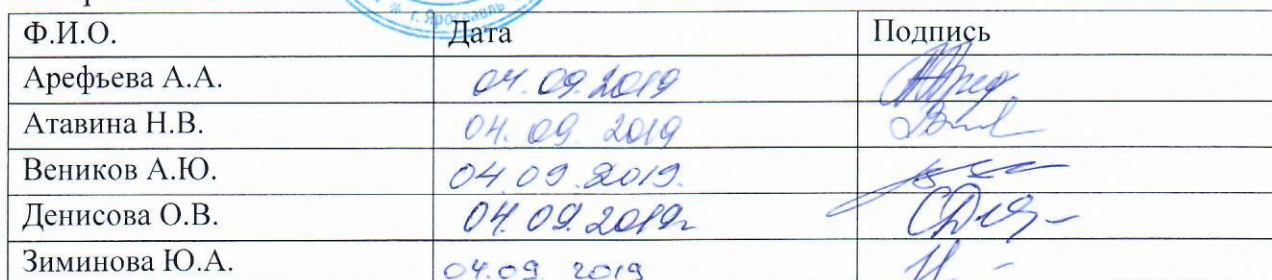 г. Ярославль
Ф.И.О. Дата Подпись
Арефьева А.А. 04.09.2019
Атавина Н.В. 04.09.2019
Веников А.Ю. 04.09.2019.
Денисова О.В. 04.09.2019г
Зиминова Ю.А. 04.09.2019